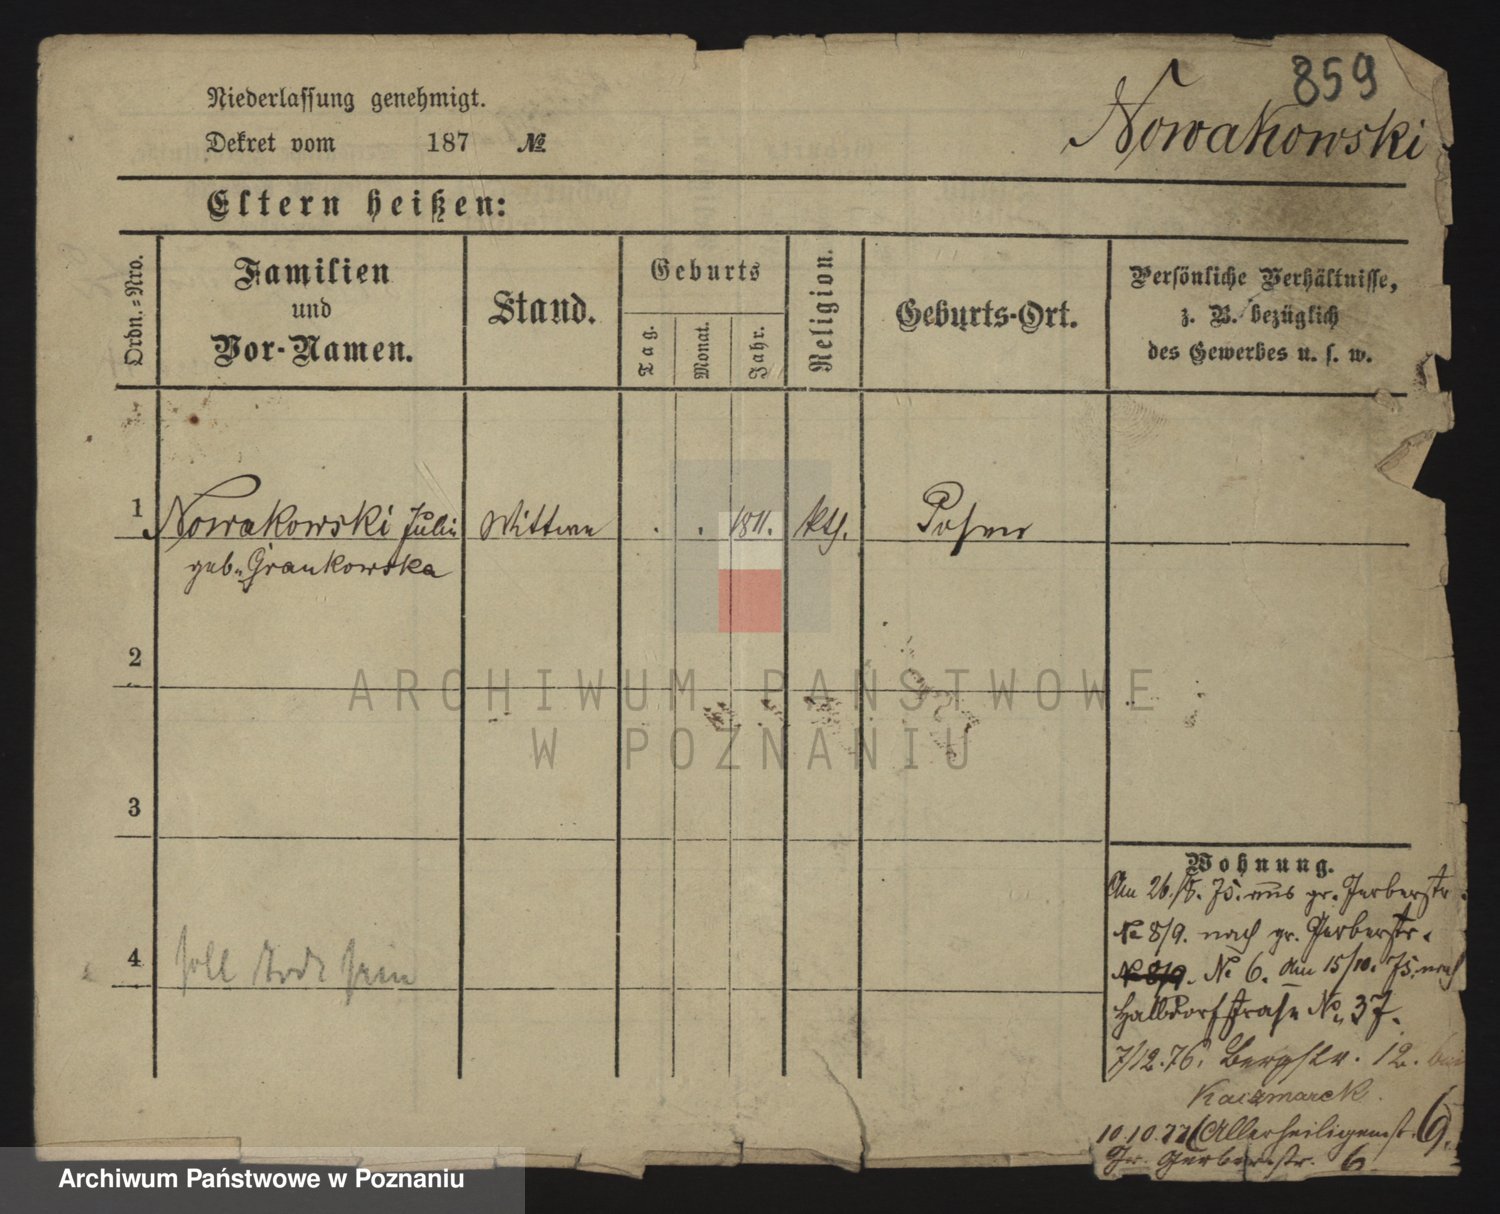 859
Nowakowski
Niederlassung genehmigt.
Dekret vom 187 №
Eltern heißen:
Ordn.=Nro.
Familien
und
Vor-Namen.
Stand.
Geburts
Tag.
Monat.
Jahr.
Religion.
Geburts-Ort.
Persönliche Verhältnisse,
z. B. bezüglich
des Gewerbes u. s. w.
1 Nowakowski Julie Wittwe . . 1811. kth. Posen
geb. Grankowska
2
ARCHIWUM PAŃSTWOWE
W POZNANIU
3
Wohnung.
Am 26./8. 75. aus gr. Gerberstr.
No 8/9. nach gr. Gerberstr.
No 8/9. No 6. Am 15/10. 75. nach
Halbdorfstraße No 37.
7/12.76. Bergstr. 12. bei
Kaczmarek.
10.10.77 Allerheiligenstr. 6.
Gr. Gerberstr. 6
4 soll todt sein
Archiwum Państwowe w Poznaniu